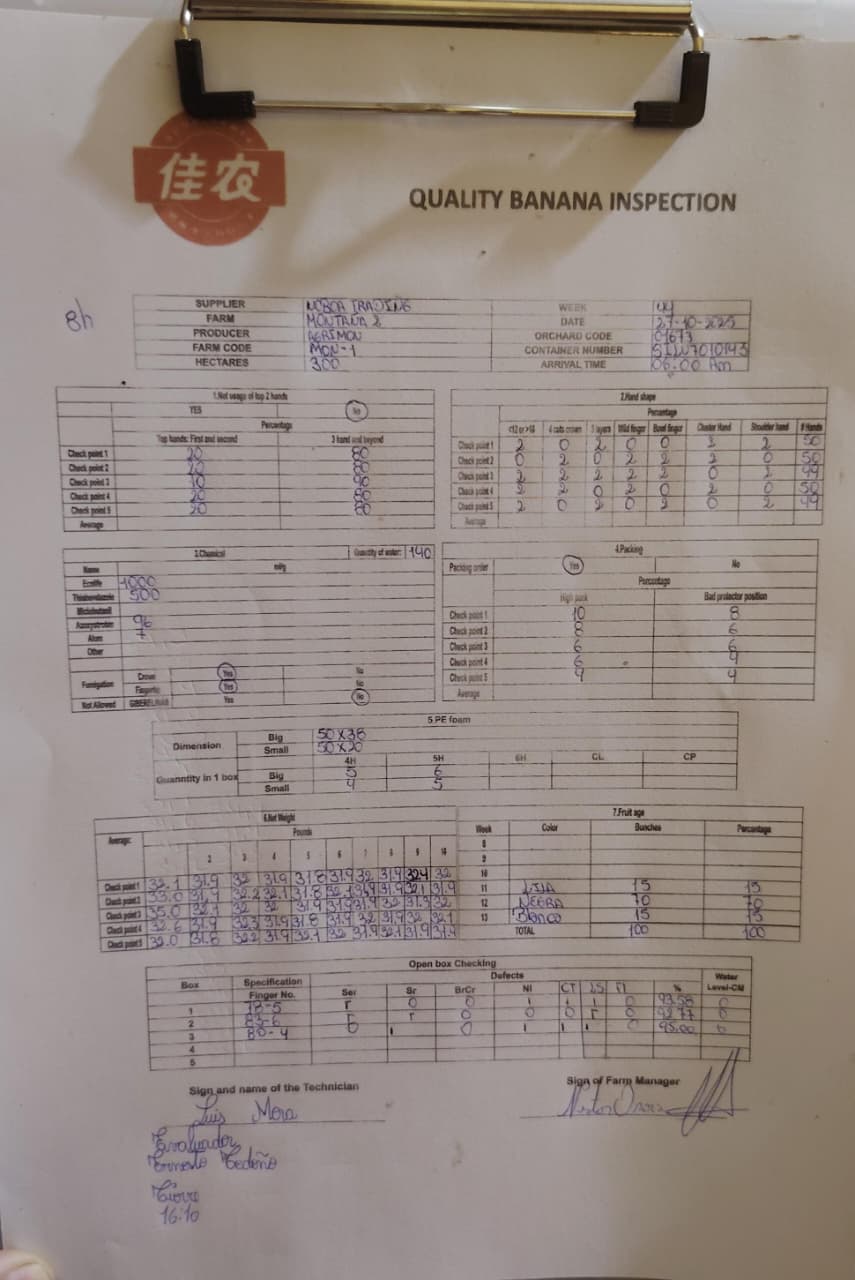 佳农
QUALITY BANANA INSPECTION
8h
SUPPLIER NOBOA TRADING WEEK 44
FARM MONTAÑA 2 DATE 27-10-2025
PRODUCER AGRIMON ORCHARD CODE 01673
FARM CODE MON-1 CONTAINER NUMBER
HECTARES 300 ARRIVAL TIME 06:00 Am
1.Not usage of top 2 hands
YES No
Percentage
Top hands: First and second 3 hand and beyond
Check point 1 20 80
Check point 2 20 80
Check point 3 10 90
Check point 4 20 80
Check point 5 20 80
Average
2.Hand shape
Percentage
4 cuts crown 3 layers Wild finger Bend finger Cluster Hand Shoulder hand # Hands
Check point 1 2 0 2 0 0 2 2 50
Check point 2 0 2 0 2 2 2 0 50
Check point 3 2 2 2 2 2 0 2 49
Check point 4 2 2 0 2 0 2 0 50
Check point 5 2 0 2 0 2 0 2 49
Average
3.Chemical Quantity of water: 140
Name
Ecolife 1000
Thiabendazole 500
Azoxystrobin 96
Alum 7
Other
Fumigation Crown Yes No
Fingertip Yes No
Not Allowed Yes No
4.Packing
Packing order Yes No
Percentage
High pack Bad protector position
Check point 1 10 8
Check point 2 8 6
Check point 3 6 6
Check point 4 6 4
Check point 5 4 4
Average
5.PE foam
Dimension Big 50x38
Small 50x20
4H 5H 6H CL CP
Quanntity in 1 box Big 5 6
Small 4 5
6.Net Weight
Average: Pounds
2 3 4 5 6 7 8 9 10
Check point 1 32.1 31.9 32 31.9 31.8 31.9 32 31.9 32.4 32
Check point 2 33.0 31.9 32.2 32.1 31.8 32 31.9 32.1 31.9
Check point 3 32.1 32 32 31.9 31.9 31.9 32 31.9 32
Check point 4 32.6 31.9 32.3 31.9 31.8 31.9 32 31.9 32 32.1
Check point 5 32.0 31.8 32.2 31.9 32.1 32 31.9 32.1 31.9 31.9
7.Fruit age
Week Color Bunches Percentage
8
9
10
11 LILA 15 15
12 NEGRA 70 70
13 Blanco 15 15
TOTAL 100 100
Open box Checking
Box Specification Defects Water
Finger No. Ser Sr BrCr NI CT LS FI % Level-CM
1 78-5 0 0 0 93.58 0
2 83-6 0 0 0 0 92.77 0
3 80-4 0 0 95.00 0
4
5
Sign and name of the Technician
Sign of Farm Manager
Luis Mora
Evaluador
Ernesto Cedeño
Cierre
16:10